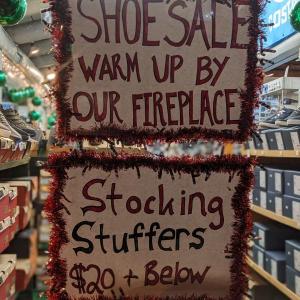 SHOE SALE
WARM UP BY
OUR FIREPLACE
Stocking
Stuffers
$20 + Below